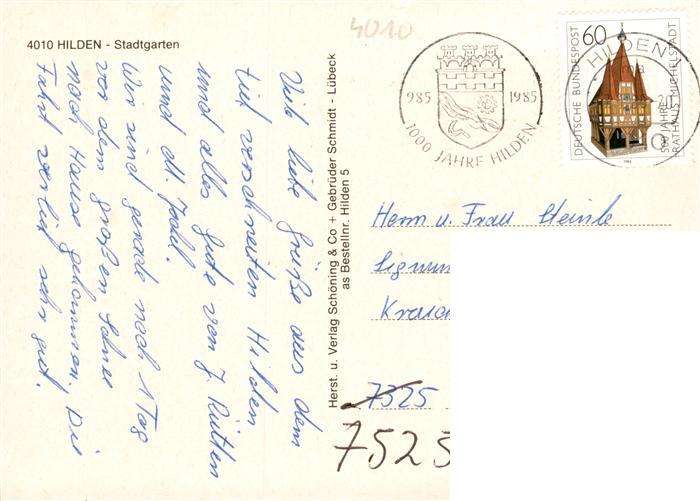 4010 HILDEN - Stadtgarten
4010
985 1985
1000 JAHRE HILDEN
HILDEN
60
DEUTSCHE BUNDESPOST
500 JAHRE
RATHAUS MICHELSTADT
1984
Viele liebe Grüße aus dem
tief verschneiten Hilden
und alles gute von J. Rütten
und M. Jodel.
Wir sind gerade noch 1 Tag
vor dem großen Schnee
nach Hause gekommen. Die
Fahrt verlief sehr gut.
Herst. u. Verlag Schöning & Co + Gebrüder Schmidt - Lübeck
as Bestellnr. Hilden 5
Herrn u. Frau Steinle
Sigmun
Kraich
7325
7525